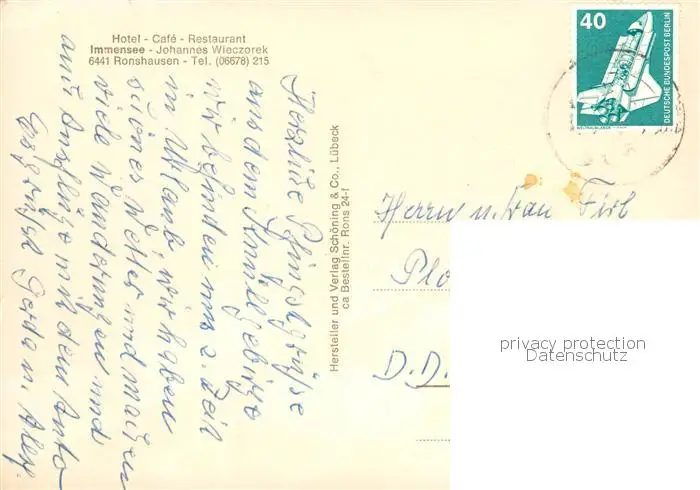 Hotel - Café - Restaurant
Immensee - Johannes Wieczorek
6441 Ronshausen - Tel. (06678) 215
40
DEUTSCHE BUNDESPOST BERLIN
WELTRAUMLABOR
Herzliche Pfingstgrüße
aus dem Knüllgebirge
wir befinden uns z. Zeit
in Urlaub, wir haben
schönes Wetter und machen
viele Wanderungen und
auch Ausflüge mit dem Auto
Es grüßt Gerda u. Alex
Hersteller und Verlag Schöning & Co., Lübeck
ca Bestellnr. Rons 24-f
Herrn u. Frau Firl
Plo
D.D.
privacy protection
Datenschutz